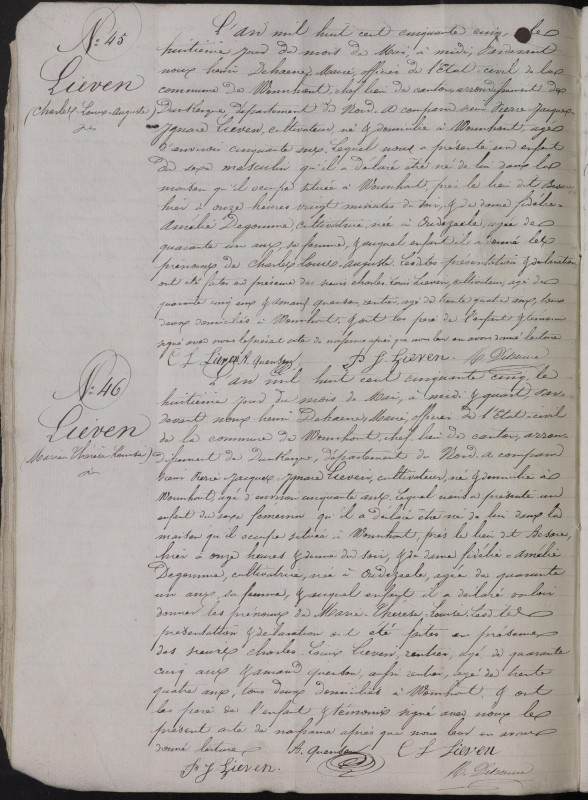 N.° 45
Lieven
(Charles-Louis-Auguste)
L'an mil huit cent cinquante cinq, le
huitième jour du mois de Mai, à midi, Pardevant
nous henri Dehaene, Maire, officier de l'Etat-civil de la
commune de Wormhout, chef lieu de canton, arrondissement de
Dunkerque, département du Nord. A comparu sieur Pierre Jacques
Ignace Lieven, cultivateur, né & domicilié à Wormhout, âgé
d'environ cinquante ans, lequel nous a présenté un enfant
du sexe masculin qu'il a déclaré être né de lui dans la
maison qu'il occupe située à Wormhout, près le lieu dit
hier à onze heures vingt minutes du soir, & de dame fidélie-
Amélie Degomme, cultivatrice, née à Oudezeele, agée de
quarante un ans, sa femme, & auquel enfant il a donné les
prénoms de Charles-Louis-Auguste. Lesdites présentation & déclaration
ont été faites en présence des sieurs charles Louis Lieven, cultivateur, agé de
quarante cinq ans & amand Quenson, rentier, agé de trente quatre ans, tous
deux domiciliés à Wormhout, & ont les père de l'enfant & témoins
signé avec nous le présent acte de naissance après que nous leur en avons donné lecture
C L Lieven A. Quenson P J Lieven. h. Dehaene
N.° 46
Lieven
(Marie Thérèse Louise)
L'an mil huit cent cinquante cinq, le
huitième jour du mois de Mai, à midi & quart, Par
devant nous henri Dehaene, Maire, officier de l'Etat-civil
de la commune de Wormhout, chef lieu de canton, arron-
dissement de Dunkerque, département du Nord. A comparu
sieur Pierre Jacques Ignace Lieven, cultivateur, né & domicilié à
Wormhout, agé d'environ cinquante ans, lequel nous a présenté un
enfant du sexe femenin qu'il a déclaré être né de lui dans la
maison qu'il occupe située à Wormhout, près le lieu dit
hier à onze heures & demie du soir, & de dame fidélie-Amélie
Degomme, cultivatrice, née à Oudezeele, agée de quarante
un ans, sa femme, & auquel enfant il a déclaré vouloir
donner les prénoms de Marie-Thérèse-Louise. Lesdites
présentation & déclaration ont été faites en présence
des sieurs Charles Louis Lieven, rentier, agé de quarante
cinq ans & amand Quenson, rentier, agé de trente
quatre ans, tous deux domiciliés à Wormhout, & ont
les père de l'enfant & témoins signé avec nous le
présent acte de naissance après que nous leur en avons
donné lecture A. Quenson C L Lieven
P J Lieven. h. Dehaene